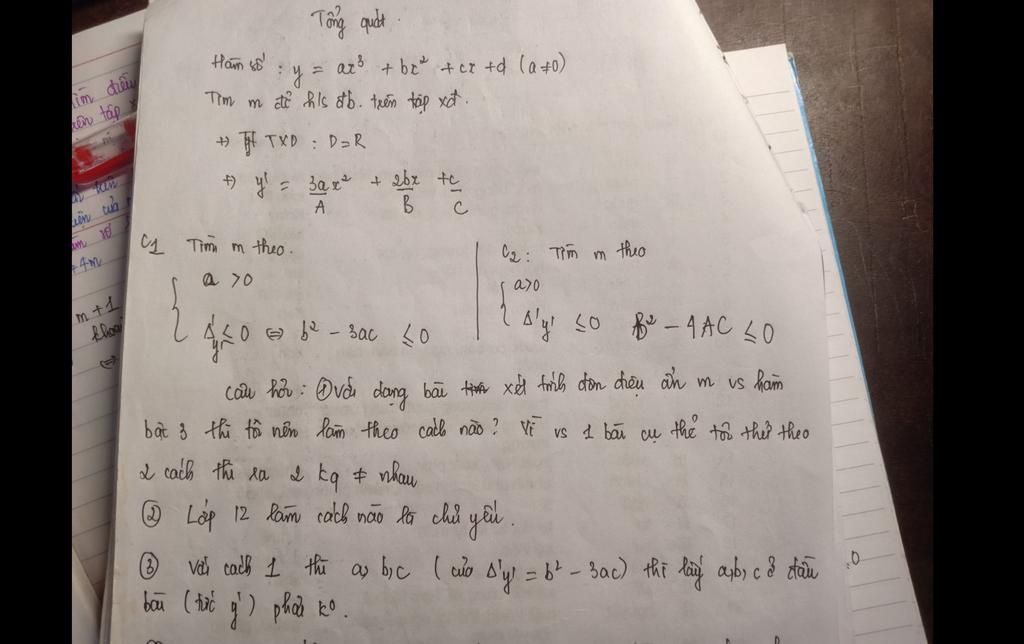 Tổng quát.
Hàm số : y = ax³ + bx² + cx + d (a≠0)
Tìm m để h/s đb. trên tập xđ.
+) TXD : D=R
+) y' = 3ax² + 2bx + c
A B C
C1 Tìm m theo.
a >0
Δ'y' ≤ 0 ⇔ b² - 3ac ≤ 0
C2 : Tìm m theo
a>0
Δ'y' ≤ 0 B² - 4AC ≤ 0
Câu hỏi : ① Với dạng bài xét tính đơn điệu ẩn m vs hàm
bậc 3 thì tôi nên làm theo cách nào? Vì vs 1 bài cụ thể tôi thử theo
2 cách thì ra 2 kq ≠ nhau
② Lớp 12 làm cách nào là chủ yếu.
③ Với cách 1 thì a, b, c ( của Δ'y' = b² - 3ac) thì lấy a,b,c ở đầu
bài (tức y') phải k⁰.
tìm điều
trên tập x
+4m
m + 1
⇔